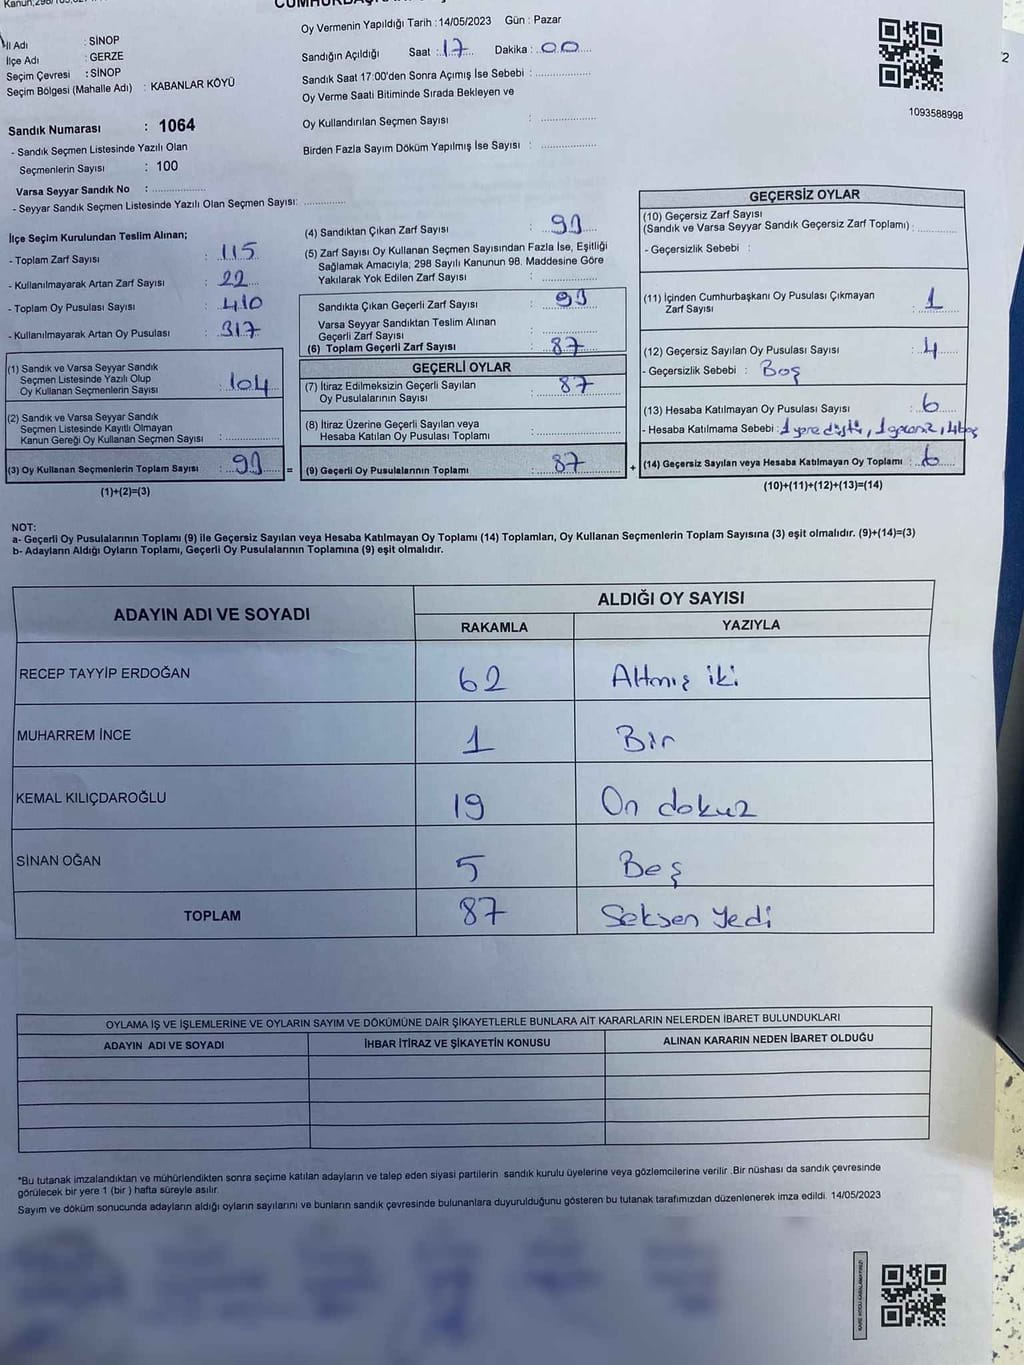 Oy Vermenin Yapıldığı Tarih : 14/05/2023 Gün : Pazar
İl Adı : SİNOP
İlçe Adı : GERZE
Seçim Çevresi : SİNOP
Seçim Bölgesi (Mahalle Adı) : KABANLAR KÖYÜ
Sandığın Açıldığı Saat : 17 Dakika : 00
Sandık Saat 17:00'den Sonra Açımış İse Sebebi :
Oy Verme Saati Bitiminde Sırada Bekleyen ve
Oy Kullandırılan Seçmen Sayısı :
Birden Fazla Sayım Döküm Yapılmış İse Sayısı :
1093588998
2
Sandık Numarası : 1064
- Sandık Seçmen Listesinde Yazılı Olan
Seçmenlerin Sayısı : 100
Varsa Seyyar Sandık No :
- Seyyar Sandık Seçmen Listesinde Yazılı Olan Seçmen Sayısı:
İlçe Seçim Kurulundan Teslim Alınan;
- Toplam Zarf Sayısı : 115
- Kullanılmayarak Artan Zarf Sayısı : 22
- Toplam Oy Pusulası Sayısı : 410
- Kullanılmayarak Artan Oy Pusulası : 317
(1) Sandık ve Varsa Seyyar Sandık
Seçmen Listesinde Yazılı Olup
Oy Kullanan Seçmenlerin Sayısı : 104
(2) Sandık ve Varsa Seyyar Sandık
Seçmen Listesinde Kayıtlı Olmayan
Kanun Gereği Oy Kullanan Seçmen Sayısı :
(3) Oy Kullanan Seçmenlerin Toplam Sayısı : 93 =
(1)+(2)=(3)
(4) Sandıktan Çıkan Zarf Sayısı : 93
(5) Zarf Sayısı Oy Kullanan Seçmen Sayısından Fazla İse, Eşitliği
Sağlamak Amacıyla; 298 Sayılı Kanunun 98. Maddesine Göre
Yakılarak Yok Edilen Zarf Sayısı :
Sandıkta Çıkan Geçerli Zarf Sayısı : 93
Varsa Seyyar Sandıktan Teslim Alınan
Geçerli Zarf Sayısı :
(6) Toplam Geçerli Zarf Sayısı : 87
GEÇERLİ OYLAR
(7) İtiraz Edilmeksizin Geçerli Sayılan
Oy Pusulalarının Sayısı : 87
(8) İtiraz Üzerine Geçerli Sayılan veya
Hesaba Katılan Oy Pusulası Toplamı :
(9) Geçerli Oy Pusulalarının Toplamı : 87 +
GEÇERSİZ OYLAR
(10) Geçersiz Zarf Sayısı
(Sandık ve Varsa Seyyar Sandık Geçersiz Zarf Toplamı) :
- Geçersizlik Sebebi :
(11) İçinden Cumhurbaşkanı Oy Pusulası Çıkmayan
Zarf Sayısı : 1
(12) Geçersiz Sayılan Oy Pusulası Sayısı : 4
- Geçersizlik Sebebi : Boş
(13) Hesaba Katılmayan Oy Pusulası Sayısı : 6
- Hesaba Katılmama Sebebi : 1 yere düştü, 1 , 4 boş
(14) Geçersiz Sayılan veya Hesaba Katılmayan Oy Toplamı : 6
(10)+(11)+(12)+(13)=(14)
NOT:
a- Geçerli Oy Pusulalarının Toplamı (9) ile Geçersiz Sayılan veya Hesaba Katılmayan Oy Toplamı (14) Toplamları, Oy Kullanan Seçmenlerin Toplam Sayısına (3) eşit olmalıdır. (9)+(14)=(3)
b- Adayların Aldığı Oyların Toplamı, Geçerli Oy Pusulalarının Toplamına (9) eşit olmalıdır.
ADAYIN ADI VE SOYADI
ALDIĞI OY SAYISI
RAKAMLA YAZIYLA
RECEP TAYYİP ERDOĞAN 62 Altmış iki
MUHARREM İNCE 1 Bir
KEMAL KILIÇDAROĞLU 19 On dokuz
SİNAN OĞAN 5 Beş
TOPLAM 87 Seksen Yedi
OYLAMA İŞ VE İŞLEMLERİNE VE OYLARIN SAYIM VE DÖKÜMÜNE DAİR ŞİKAYETLERLE BUNLARA AİT KARARLARIN NELERDEN İBARET BULUNDUKLARI
ADAYIN ADI VE SOYADI İHBAR İTİRAZ VE ŞİKAYETİN KONUSU ALINAN KARARIN NEDEN İBARET OLDUĞU
*Bu tutanak imzalandıktan ve mühürlendikten sonra seçime katılan adayların ve talep eden siyasi partilerin sandık kurulu üyelerine veya gözlemcilerine verilir .Bir nüshası da sandık çevresinde
görülecek bir yere 1 (bir ) hafta süreyle asılır.
Sayım ve döküm sonucunda adayların aldığı oyların sayılarını ve bunların sandık çevresinde bulunanlara duyurulduğunu gösteren bu tutanak tarafımızdan düzenlenerek imza edildi. 14/05/2023